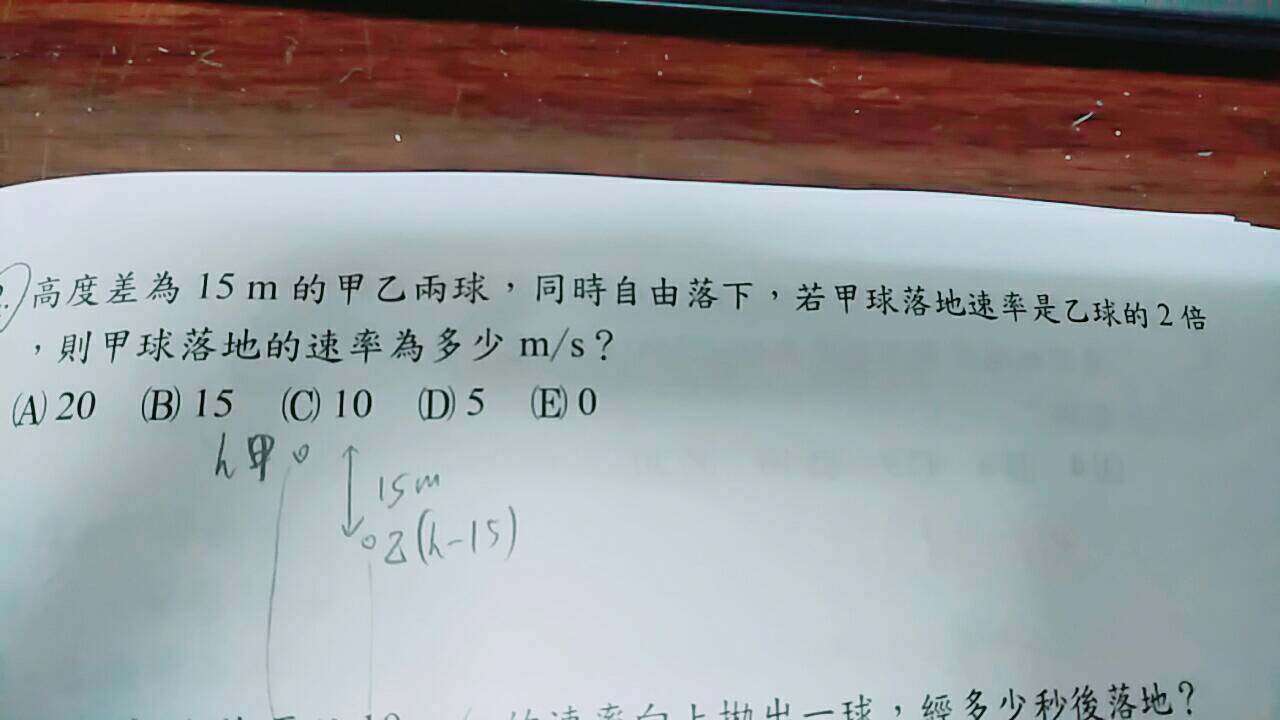 高度差為 15 m 的甲乙兩球，同時自由落下，若甲球落地速率是乙球的 2 倍
，則甲球落地的速率為多少 m/s？
(A) 20 (B) 15 (C) 10 (D) 5 (E) 0
h甲
15m
乙(h-15)
的速率向上拋出一球，經多少秒後落地？